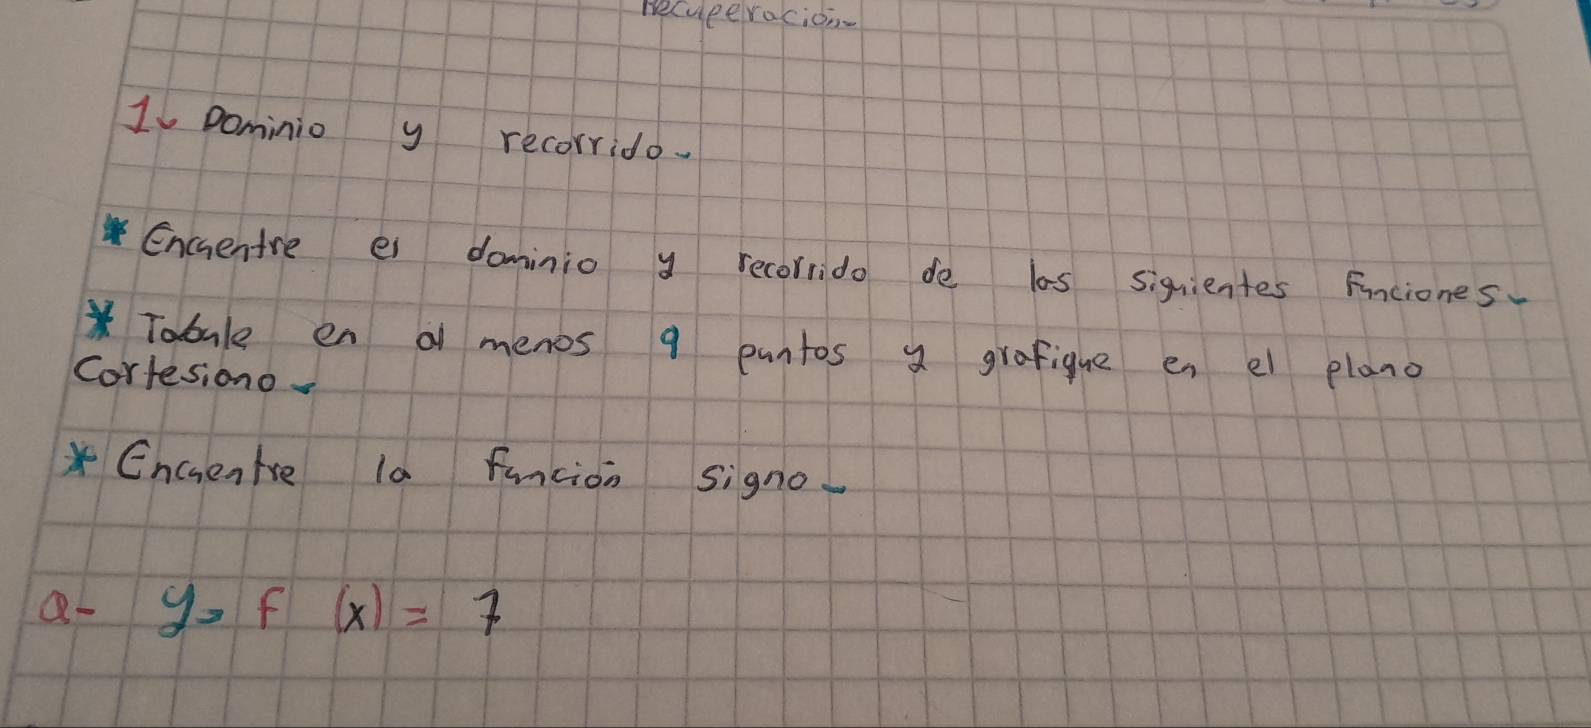 Recuperación
1. Dominio y recorrido.
* Encuentre el dominio y recorrido de las siguientes funciones.
* Tabule en al menos 9 puntos y grafique en el plano
Cartesiano.
* Encuentre la función signo.
a- y= f (x) = 7